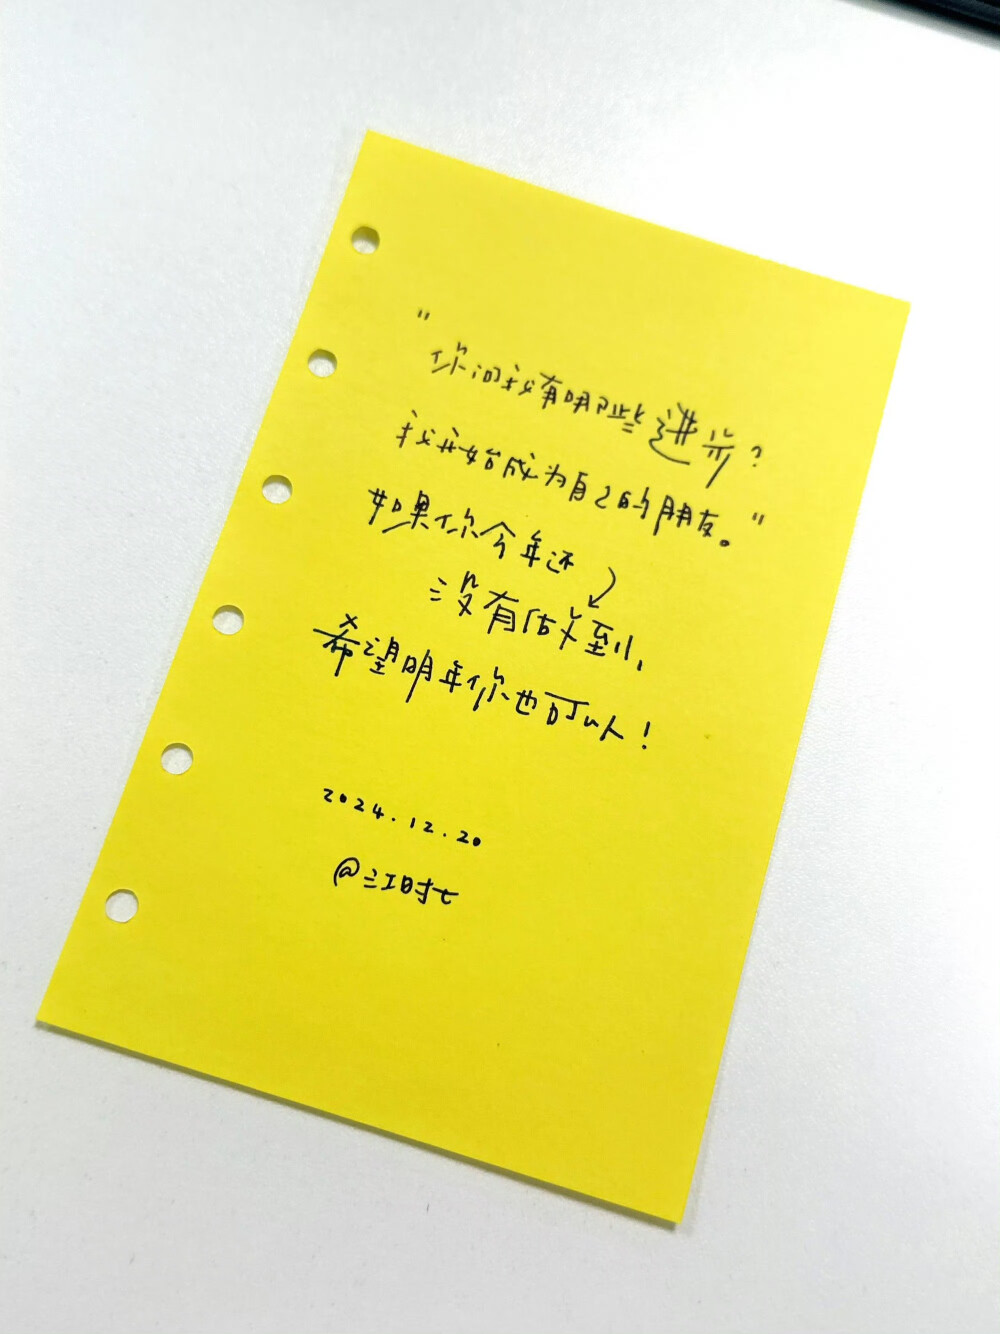 "
你问我有哪些进步?
我开始成为自己的朋友。"
如果你今年还
没有做到,
希望明年你也可以!
2024.12.20
@江时七